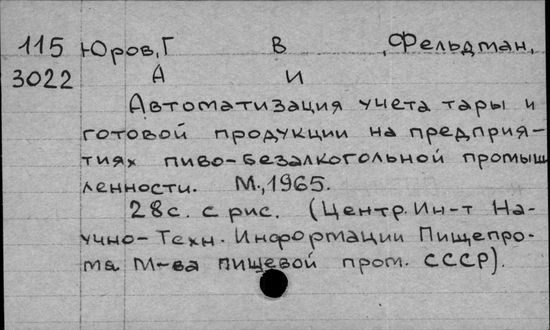 115 Юров, Г В , Фельдман,
3022 А И
Автоматизация учета тары и
готовой продукции на предприя-
тиях пиво-безалкогольной промыш
ленности. М., 1965.
28с. с рис. (Центр. Ин-т На-
учно-Техн. Информации Пищепро-
ма М-ва пищевой пром. СССР).